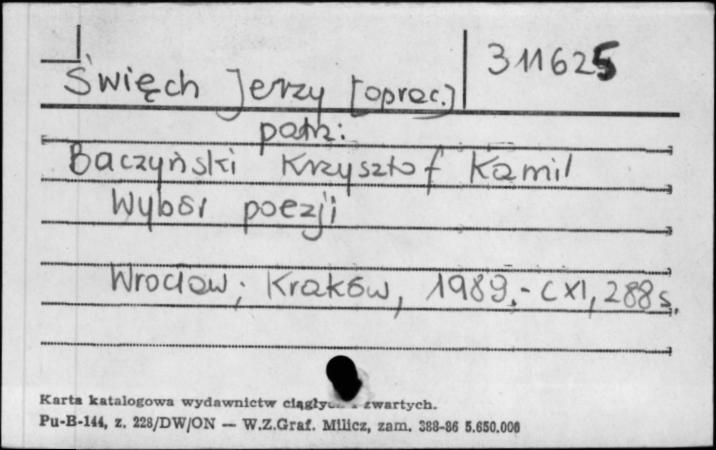 311625
Święch Jerzy [oprac.]
patrz:
Baczyński Krzysztof Kamil
Wybór poezji
Wrocław; Kraków, 1989.- CXI, 288 s.
Karta katalogowa wydawnictw ciągłych i zwartych.
Pu-B-144, z. 228/DW/ON — W.Z.Graf. Milicz, zam. 388-86 5.650.000